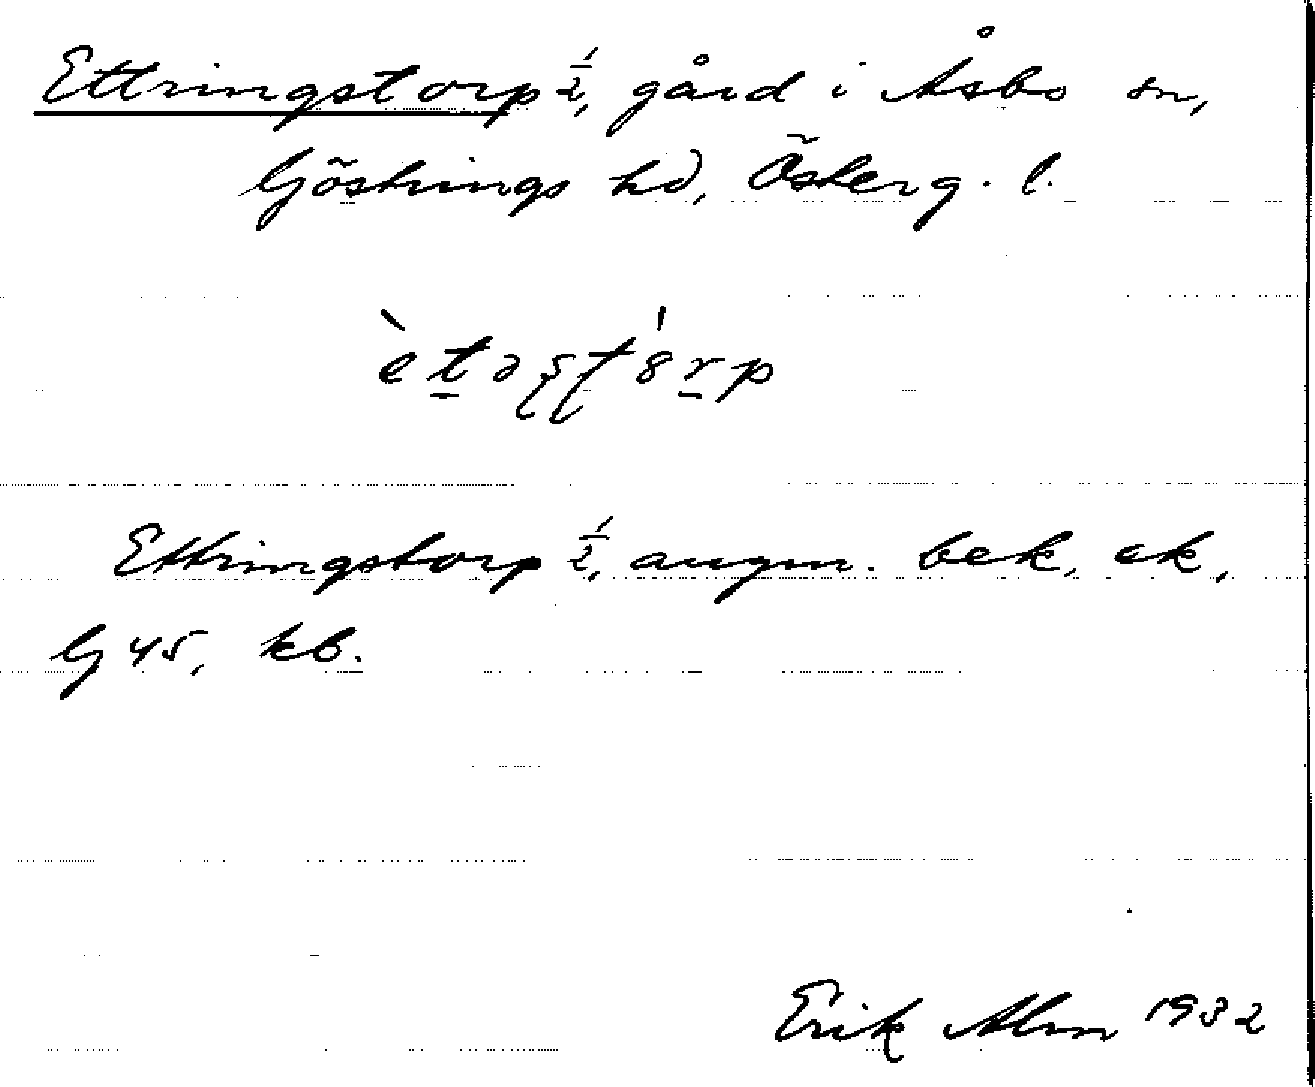 Ettringstorp 1/2, gård i Åsbo sn,
Göstrings hd, Österg. l.
Ettringstorp 1/2, augm. bek. ek,
G 45, kb.
Erik Alm 1932